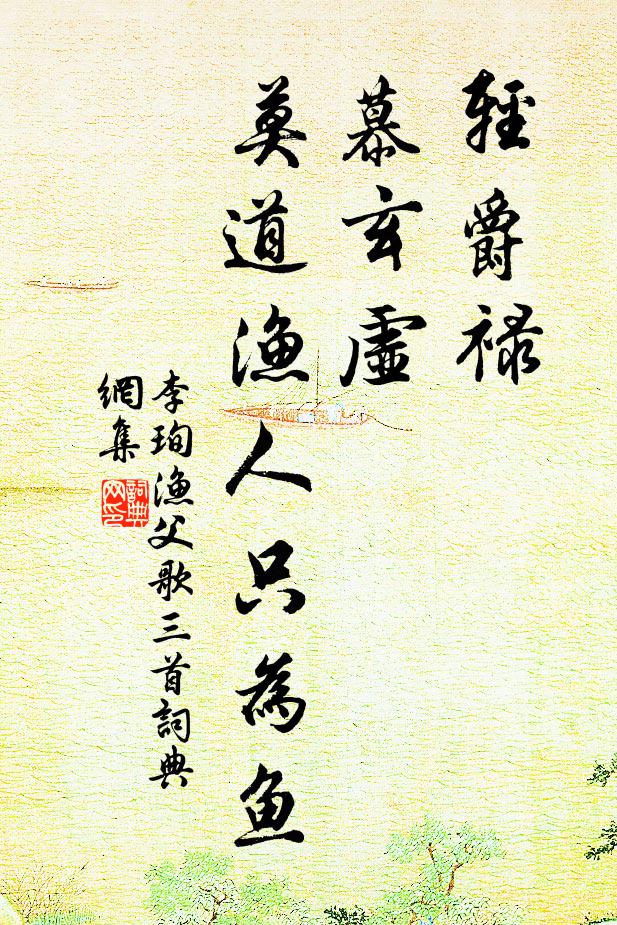 輕爵禄
慕玄虛
莫道漁人只為魚
李珣漁父歌三首詞典
網集
詞典
网印